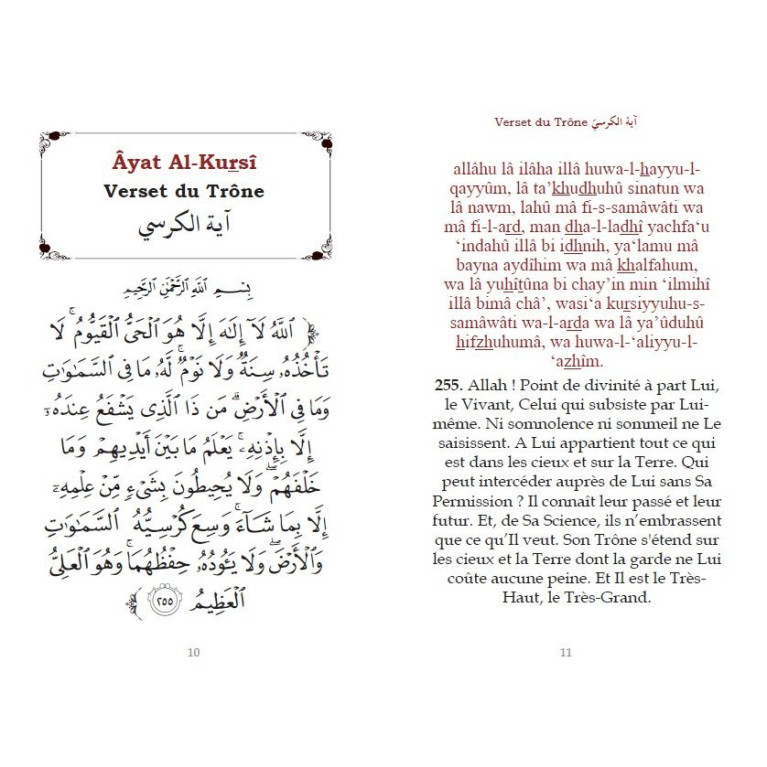 Âyat Al-Kursî
Verset du Trône
آية الكرسي
بِسْمِ اللَّهِ الرَّحْمَٰنِ الرَّحِيمِ
اللَّهُ لَآ إِلَٰهَ إِلَّا هُوَ الْحَيُّ الْقَيُّومُ ۚ لَا
تَأْخُذُهُۥ سِنَةٌ وَلَا نَوْمٌ ۚ لَّهُۥ مَا فِى السَّمَٰوَٰتِ
وَمَا فِى الْأَرْضِ ۗ مَن ذَا الَّذِى يَشْفَعُ عِندَهُۥٓ
إِلَّا بِإِذْنِهِۦ ۚ يَعْلَمُ مَا بَيْنَ أَيْدِيهِمْ وَمَا
خَلْفَهُمْ ۖ وَلَا يُحِيطُونَ بِشَىْءٍ مِّنْ عِلْمِهِۦٓ
إِلَّا بِمَا شَآءَ ۚ وَسِعَ كُرْسِيُّهُ السَّمَٰوَٰتِ
وَالْأَرْضَ ۖ وَلَا يَـُٔودُهُۥ حِفْظُهُمَا ۚ وَهُوَ الْعَلِىُّ
الْعَظِيمُ ٢٥٥
10
Verset du Trône آية الكرسيّ
allâhu lâ ilâha illâ huwa-l-hayyu-l-
qayyûm, lâ ta’khudhuhû sinatun wa
lâ nawm, lahû mâ fi-s-samâwâti wa
mâ fi-l-ard, man dha-l-ladhî yachfa‘u
‘indahû illâ bi idhnih, ya‘lamu mâ
bayna aydîhim wa mâ khalfahum,
wa lâ yuhîtûna bi chay’in min ‘ilmihî
illâ bimâ châ’, wasi‘a kursiyyuhu-s-
samâwâti wa-l-arda wa lâ ya’ûduhû
hifzhuhumâ, wa huwa-l-‘aliyyu-l-
‘azhîm.
255. Allah ! Point de divinité à part Lui,
le Vivant, Celui qui subsiste par Lui-
même. Ni somnolence ni sommeil ne Le
saisissent. A Lui appartient tout ce qui
est dans les cieux et sur la Terre. Qui
peut intercéder auprès de Lui sans Sa
Permission ? Il connaît leur passé et leur
futur. Et, de Sa Science, ils n’embrassent
que ce qu’Il veut. Son Trône s'étend sur
les cieux et la Terre dont la garde ne Lui
coûte aucune peine. Et Il est le Très-
Haut, le Très-Grand.
11